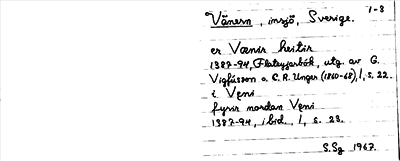 1-3
Vänern, insjö, Sverige.
er Vænir heitir
1387-94, Flateyjarbók, utg. av G.
Vigfússon o. C. R. Unger (1860-68), 1, s. 22.
i Vęni
fyrir nordan Vęni
1387-94, ibid., 1, s. 23.
S.Sg 1967.